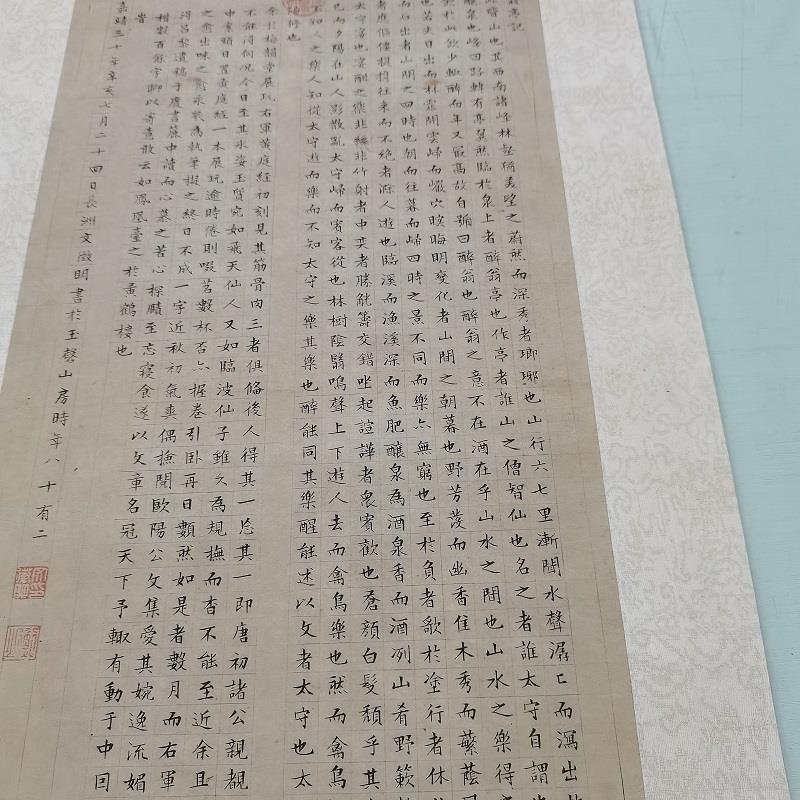 翁亭記
皆山也其西南諸峰林壑稍美望之蔚然而深秀者瑯琊也山行六七里漸聞水聲潺〻而瀉出
釀泉也峰回路轉有亭翼然臨於泉上者醉翁亭也作亭者誰山之僧智仙也名之者誰太守自謂也
飲於此飲少輒醉而年又最高故自號曰醉翁也醉翁之意不在酒在乎山水之間也山水之樂得
也若夫日出而林霏開雲歸而巖穴暝晦明變化者山間之朝暮也野芳發而幽香佳木秀而蘩蔭
而石出者山間之四時也朝而往暮而歸四時之景不同而樂亦無窮也至於負者歌於塗行者休
者應傴僂提攜往來而不絕者滁人遊也臨溪而漁溪深而魚肥釀泉為酒泉香而酒冽山肴野蔌
太守宴也宴酣之樂非絲非竹射者中奕者勝觥籌交錯坐起諠譁者衆賓歡也蒼顏白髮頹乎其
已而夕陽在山人影散亂太守歸而賓客從也林樹陰翳鳴聲上下遊人去而禽鳥樂也然而禽鳥
不知人之樂人知從太守遊而樂而不知太守之樂其樂也醉能同其樂醒能述以文者太守也太
陽修也
余於梅韻堂展玩右軍黃庭經初刻見其筋骨肉三者俱備後人得其一忘其一即唐初諸公親覩
不能得何況今日至其丰姿玉質宛如飛天仙人又如臨波仙子雖久為規撫而杳不能至近余且
中索頻日置黃庭經一本展玩逾時倦則啜茗數杯否亦握卷引臥再日數然如是者數月而右軍
之齋出味之愈永於為執筆擬之終日不成一字近秋初氣爽偶撿閱歐陽公文集愛其婉逸流媚
得昌黎遺稿于廢書簏中讀而心慕之苦心探賾至忘寢食遂以文章名冠天下予輒有動于中因
數百餘字聊以寄意敢云如鳳凰臺之於黃鶴樓也
嘉靖三十年辛亥七月二十四日長洲文徵明書於玉磬山房時年八十有二